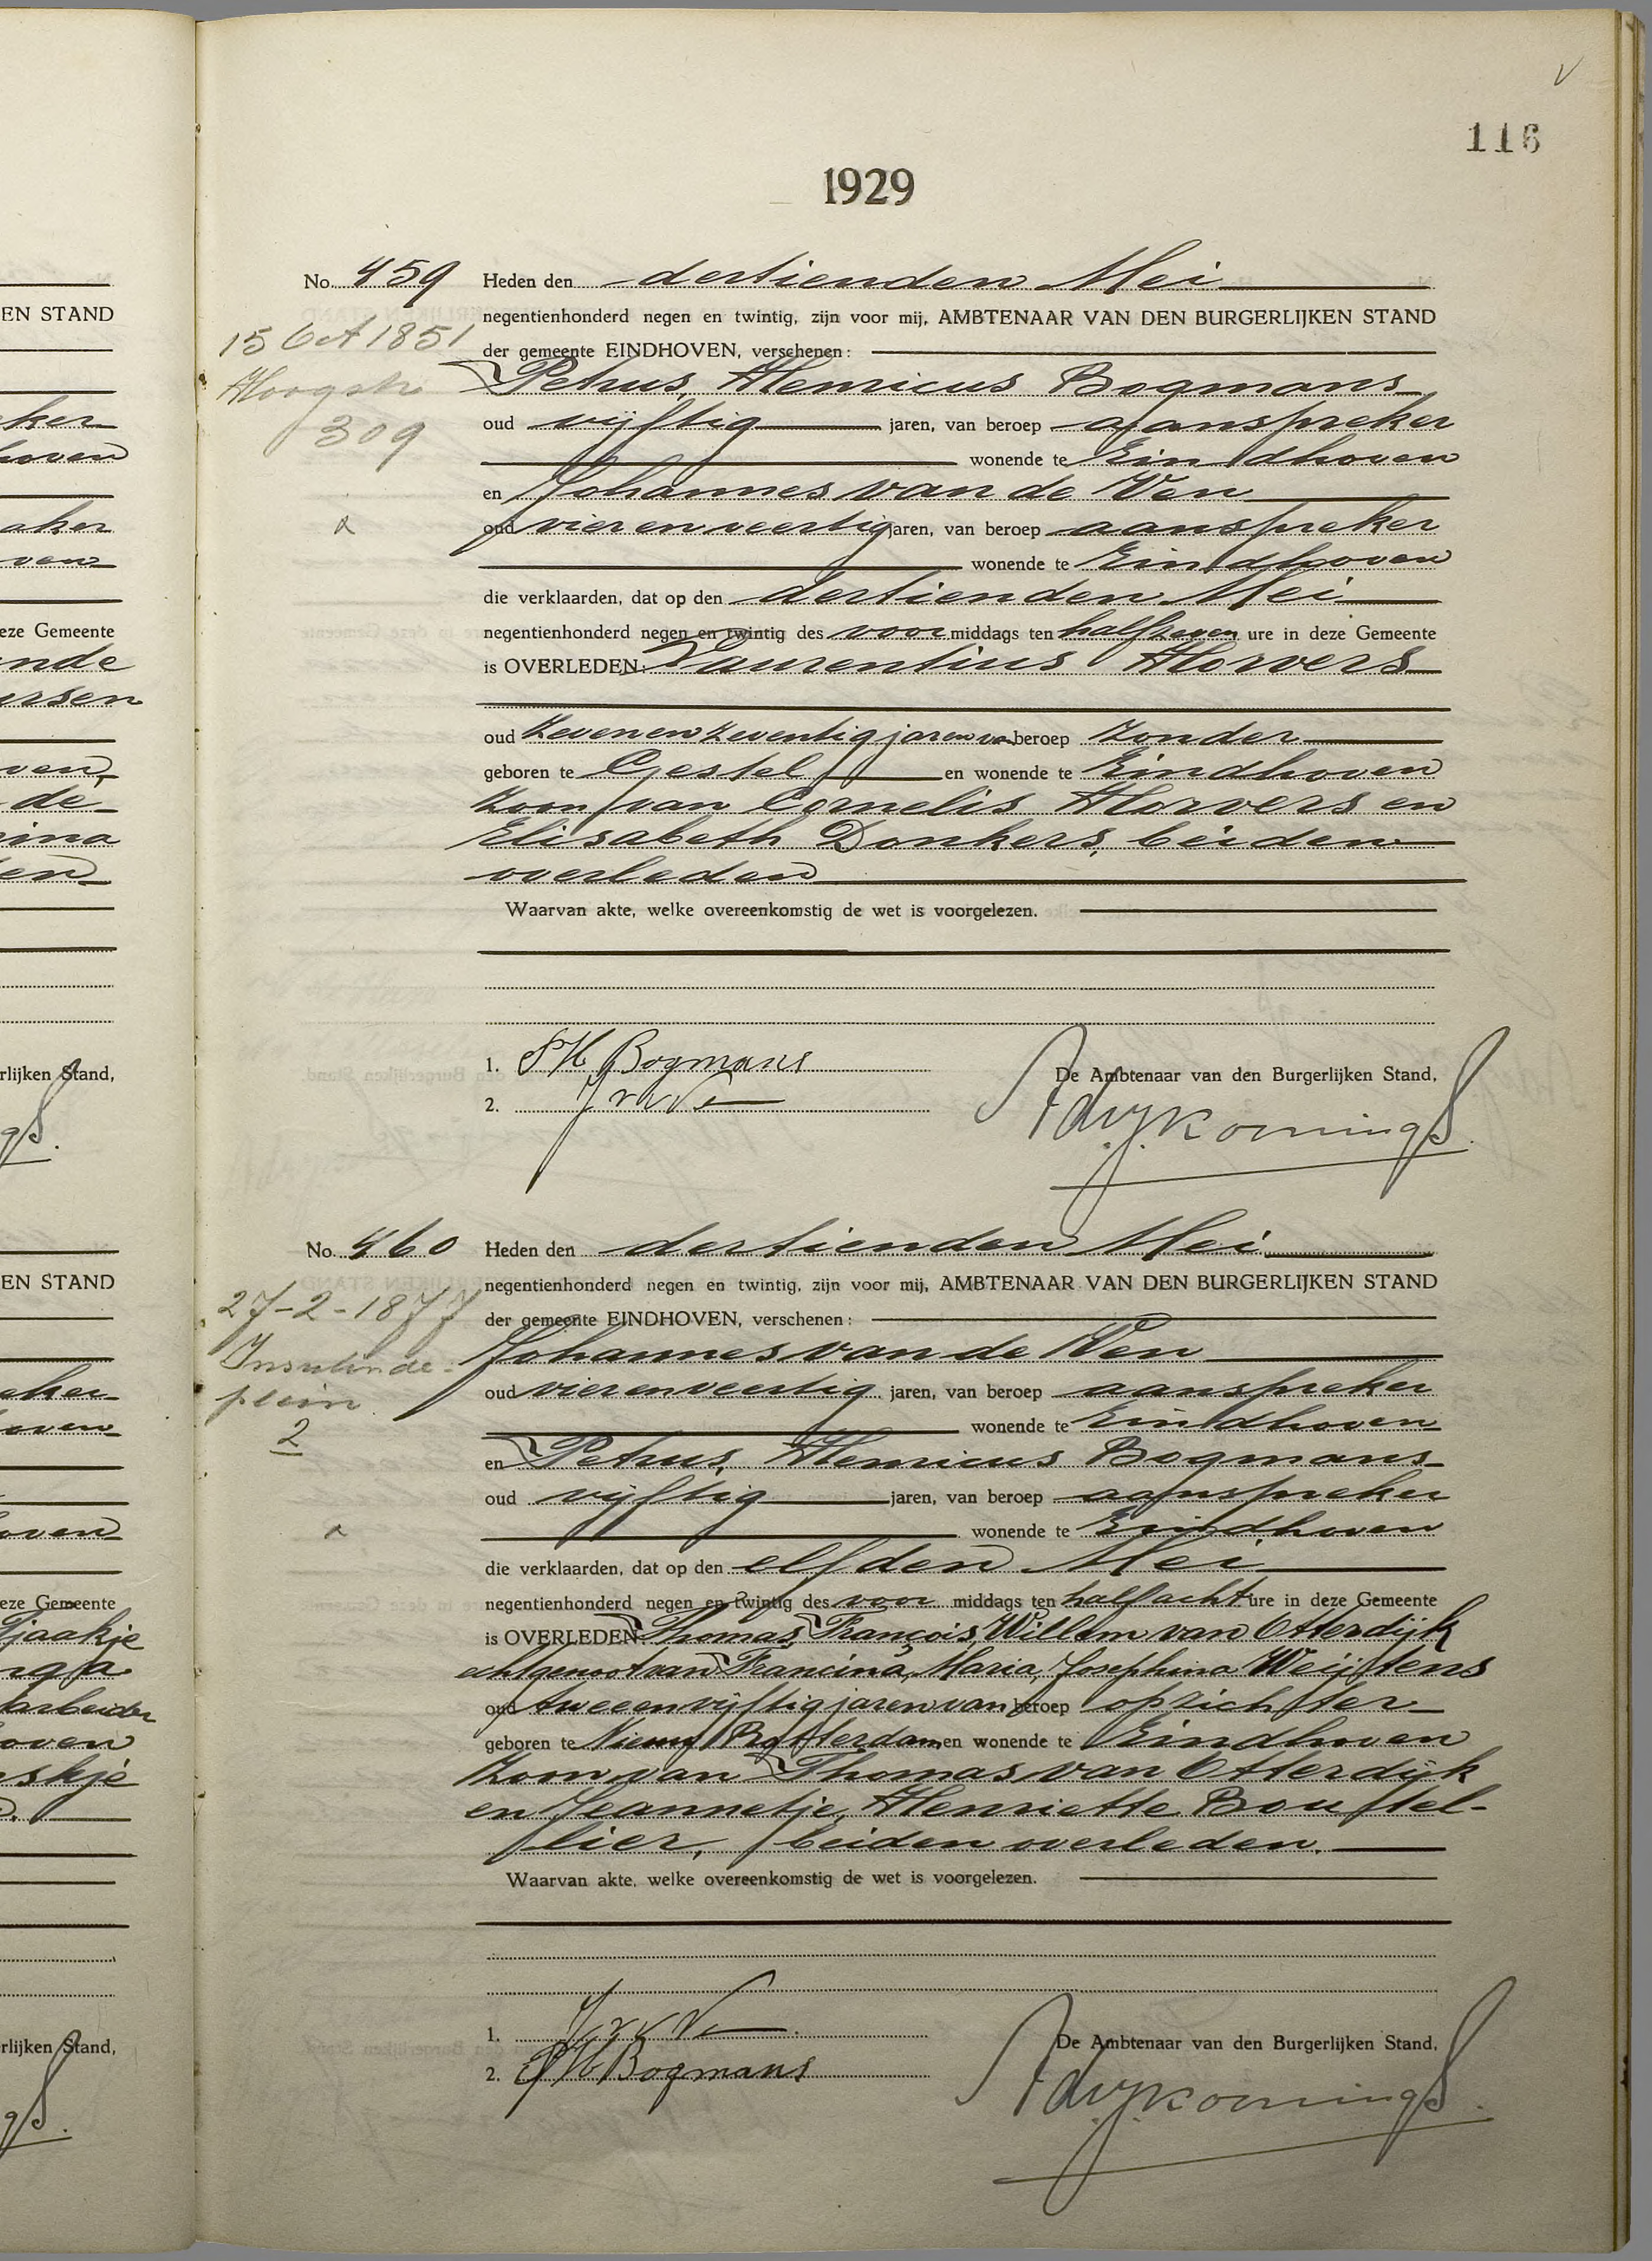 116
1929
No. 459 Heden den dertienden Mei
15 Oct 1851
negentienhonderd negen en twintig, zijn voor mij, AMBTENAAR VAN DEN BURGERLIJKEN STAND
der gemeente EINDHOVEN, verschenen:
Hoogstr
309
Petrus, Henricus Bogmans
oud vijftig jaren, van beroep aanspreker
wonende te Eindhoven
en Johannes van de Ven
oud vierenveertig jaren, van beroep aanspreker
wonende te Eindhoven
die verklaarden, dat op den dertienden Mei
negentienhonderd negen en twintig des voor middags ten halfzeven ure in deze Gemeente
is OVERLEDEN: Laurentius Horvers
oud zevenenzeventig jaren van beroep zonder
geboren te Gestel en wonende te Eindhoven
zoon van Cornelis Horvers en
Elisabeth Donkers, beiden
overleden
Waarvan akte, welke overeenkomstig de wet is voorgelezen.
1. PH Bogmans
De Ambtenaar van den Burgerlijken Stand,
2. JvdVen
No. 460 Heden den dertienden Mei
27-2-1877
negentienhonderd negen en twintig, zijn voor mij, AMBTENAAR VAN DEN BURGERLIJKEN STAND
der gemeente EINDHOVEN, verschenen:
Insulinde-
plein
2
Johannes van de Ven
oud vierenveertig jaren, van beroep aanspreker
wonende te Eindhoven
en Petrus, Henricus Bogmans
oud vijftig jaren, van beroep aanspreker
wonende te Eindhoven
die verklaarden, dat op den elfden Mei
negentienhonderd negen en twintig des voor middags ten halfacht ure in deze Gemeente
is OVERLEDEN: Thomas, François, Willem van Otterdijk
echtgenoot van Francina, Maria, Josephina Weijtens
oud tweeenvijftig jaren van beroep opzichter
geboren te Nieuw Rotterdam en wonende te Eindhoven
zoon van Thomas van Otterdijk
en Jeannetje, Henriette Boutel-
lier, beiden overleden.
Waarvan akte, welke overeenkomstig de wet is voorgelezen.
1. JvdVen
De Ambtenaar van den Burgerlijken Stand,
2. PH Bogmans